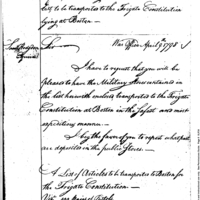 List to be transported to the Frigate Constitution
lying at Boston.
Sir War Office April 9th 1798
I have to request that you will be
pleased to have the Military Accoutrements in
the list herewith enclosed transported to the Frigate
Constitution at Boston in the safest and most
expeditious manner.
I beg the favor of you to report what part
are deposited in the public Stores.
A List of Articles to be transported to Boston for
the Frigate Constitution
pairs of Pistols